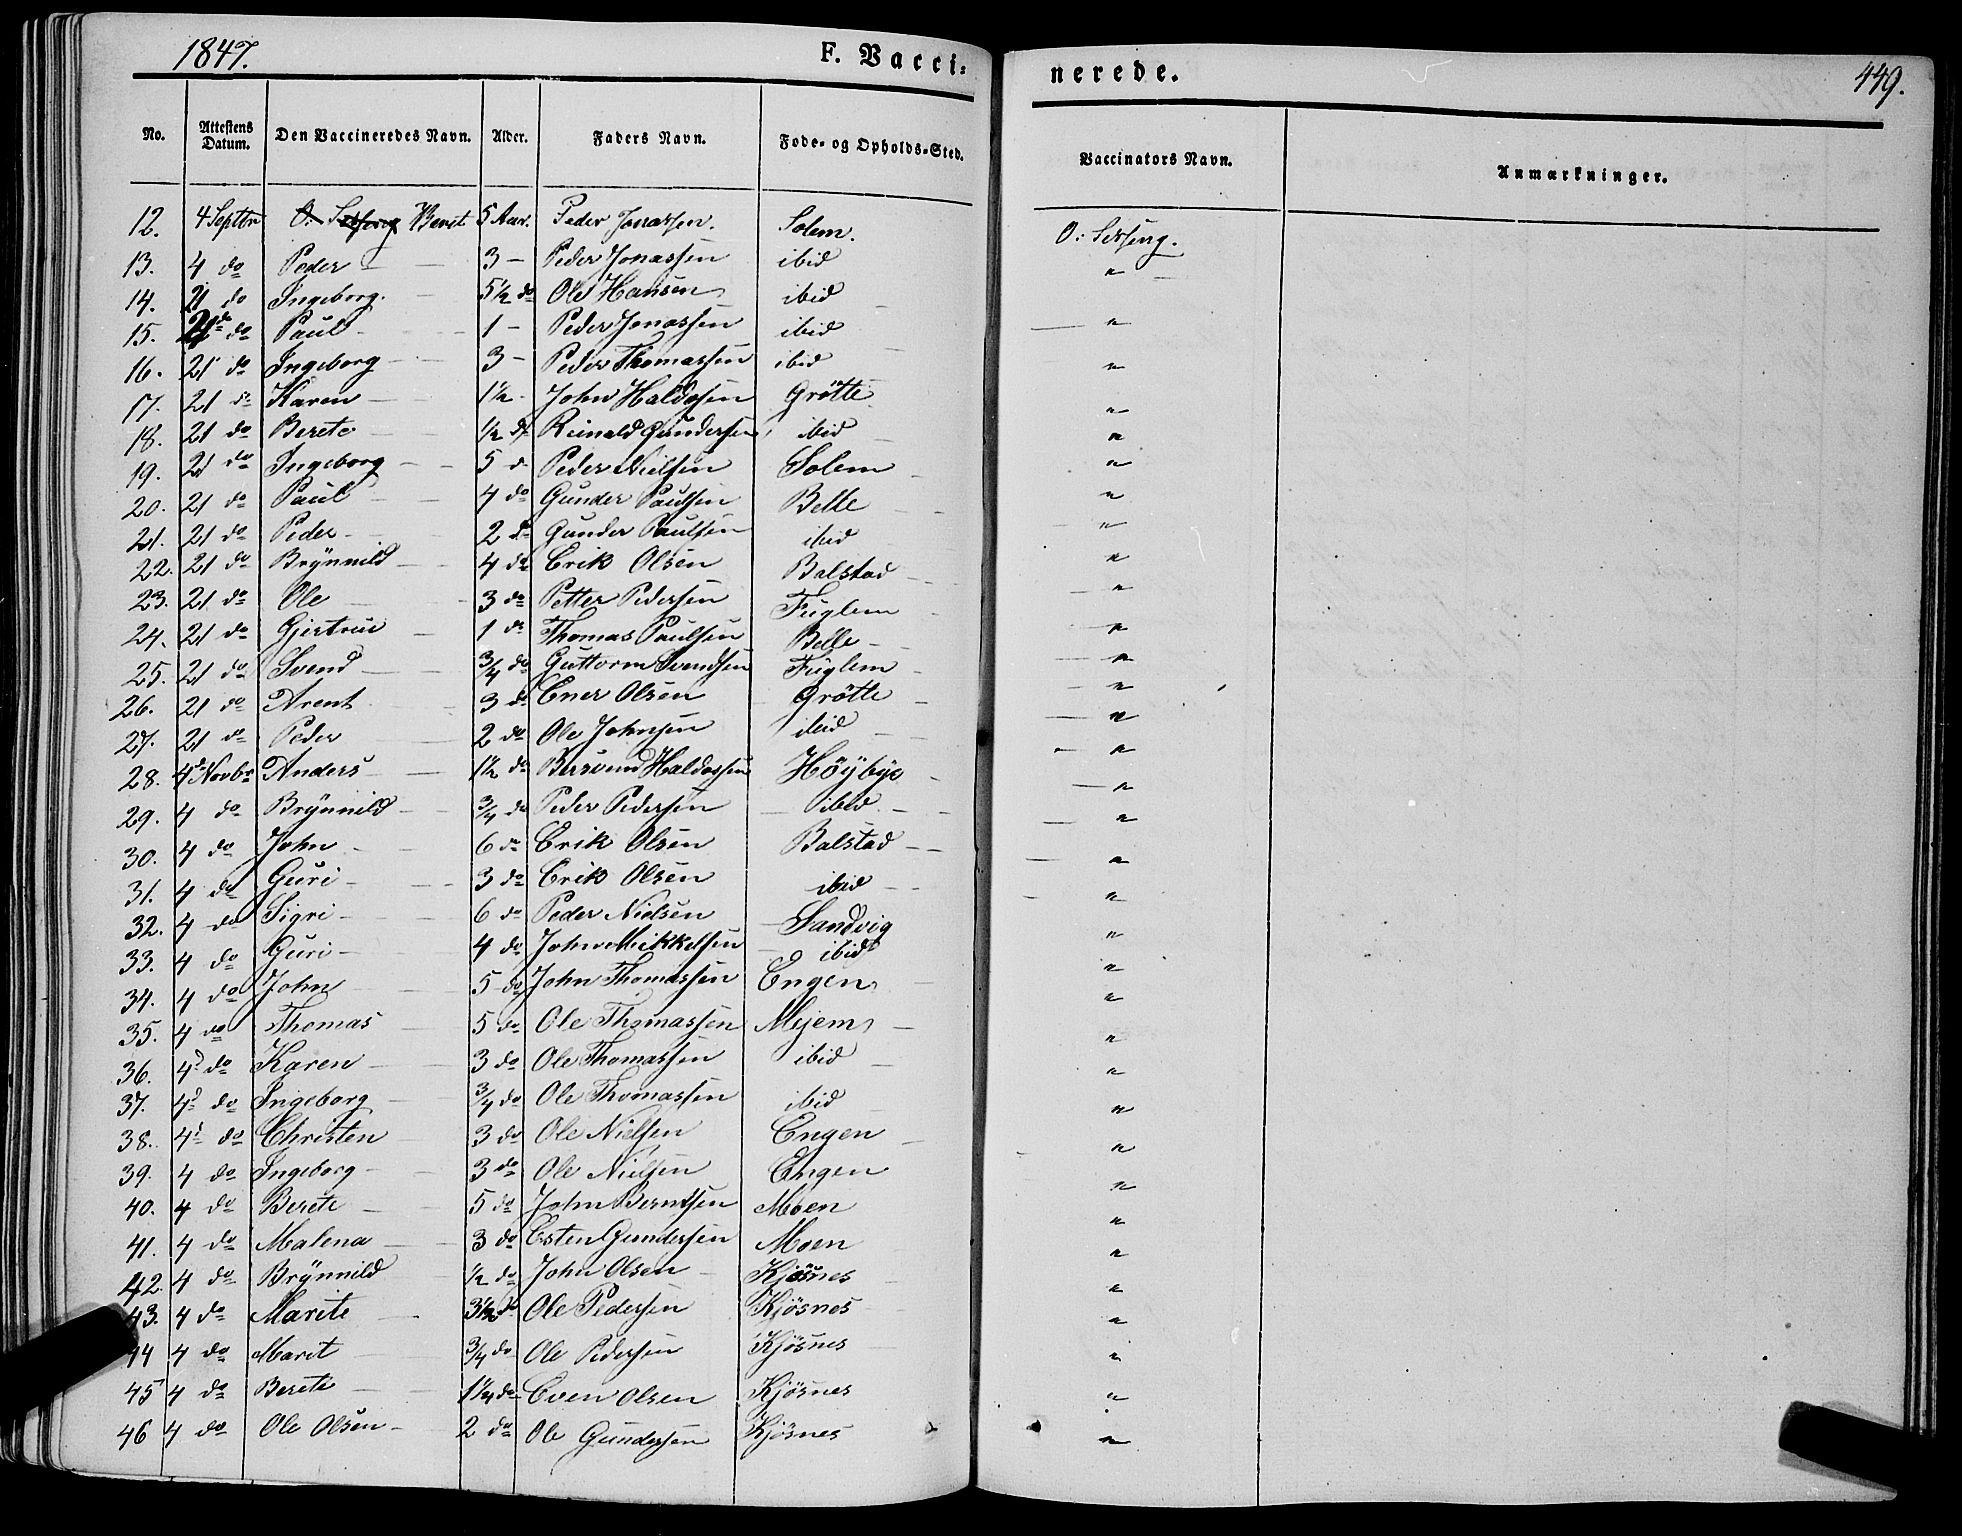 1847.
F. Vacci-
nerede.
449.
No. Attestens Datum. Den Vaccineredes Navn. Alder. Faders Navn. Føde- og Opholds-Sted. Vaccinators Navn. Anmærkninger.
12. 4 Septbr Berit 5 Aar. Peder Jonassen. Solem. O: Sesseng.
13. 4 do Peder 3 - Peder Jonassen ibid "
14. 21 do Ingeborg. 5 1/2 do Ole Hansen ibid
15. 21 do Paul 1 - Peder Jonassen ibid "
16. 21 do Ingeborg 3 - Peder Thomassen ibid "
17. 21 do Karen 1 1/2 - John Haldosen Grøtte "
18. 21 do Berete 1/2 d Reinald Gundersen ibid "
19. 21 do Ingeborg 5 d Peder Nielsen Solem "
20. 21 do Paul 4 do Gunder Paulsen Belle "
21. 21 do Peder 2 d Gunder Paulsen ibid "
22. 21 do Brynnild 4 do Erik Olsen Balstad "
23. 21 do Ole 3 do Petter Pedersen Fuglem "
24. 21 do Gjertrue 1 do Thomas Paulsen Belle "
25. 21 do Svend 3/4 do Guttorm Svendsen Fuglem "
26. 21 do Arent 3 do Ener Olsen Grøtte "
27. 21 do Peder 2 do Ole Johnsen ibid "
28. 4 Novbr Anders 1 1/2 do Bersvend Haldossen Høybye "
29. 4 do Brynnild 3/4 do Peder Pedersen ibid "
30. 4 do John 6 do Erik Olsen Balstad "
31. 4 do Guri 3 do Erik Olsen ibid "
32. 4 do Sigri 6 do Peder Nielsen Sandvig "
33. 4 do Guri 4 do John Mikkelsen ibid "
34. 4 do John 5 do John Thomassen Engen "
35. 4 do Thomas 5 do Ole Thomassen Mejem "
36. 4 do Karen 3 do Ole Thomassen ibid "
37. 4 do Ingeborg 3/4 do Ole Thomassen ibid "
38. 4 do Christen 3 do Ole Nielsen Engen "
39. 4 do Ingeborg 3 do Ole Nielsen Engen "
40. 4 do Berete 5 do John Berntsen Moen "
41. 4 do Malena 3 do Esten Gundersen Moen "
42. 4 do Brynnild 1/2 do John Olsen Kjøsnes "
43. 4 do Marite 3 1/2 do Ole Pedersen Kjøsnes "
44 4 do Marit 3/4 do Ole Pedersen Kjøsnes "
45 4 do Berete 1 1/4 do Even Olsen Kjøsnes "
46 4 do Ole Olsen 2 do Ole Gundersen Kjøsnes "